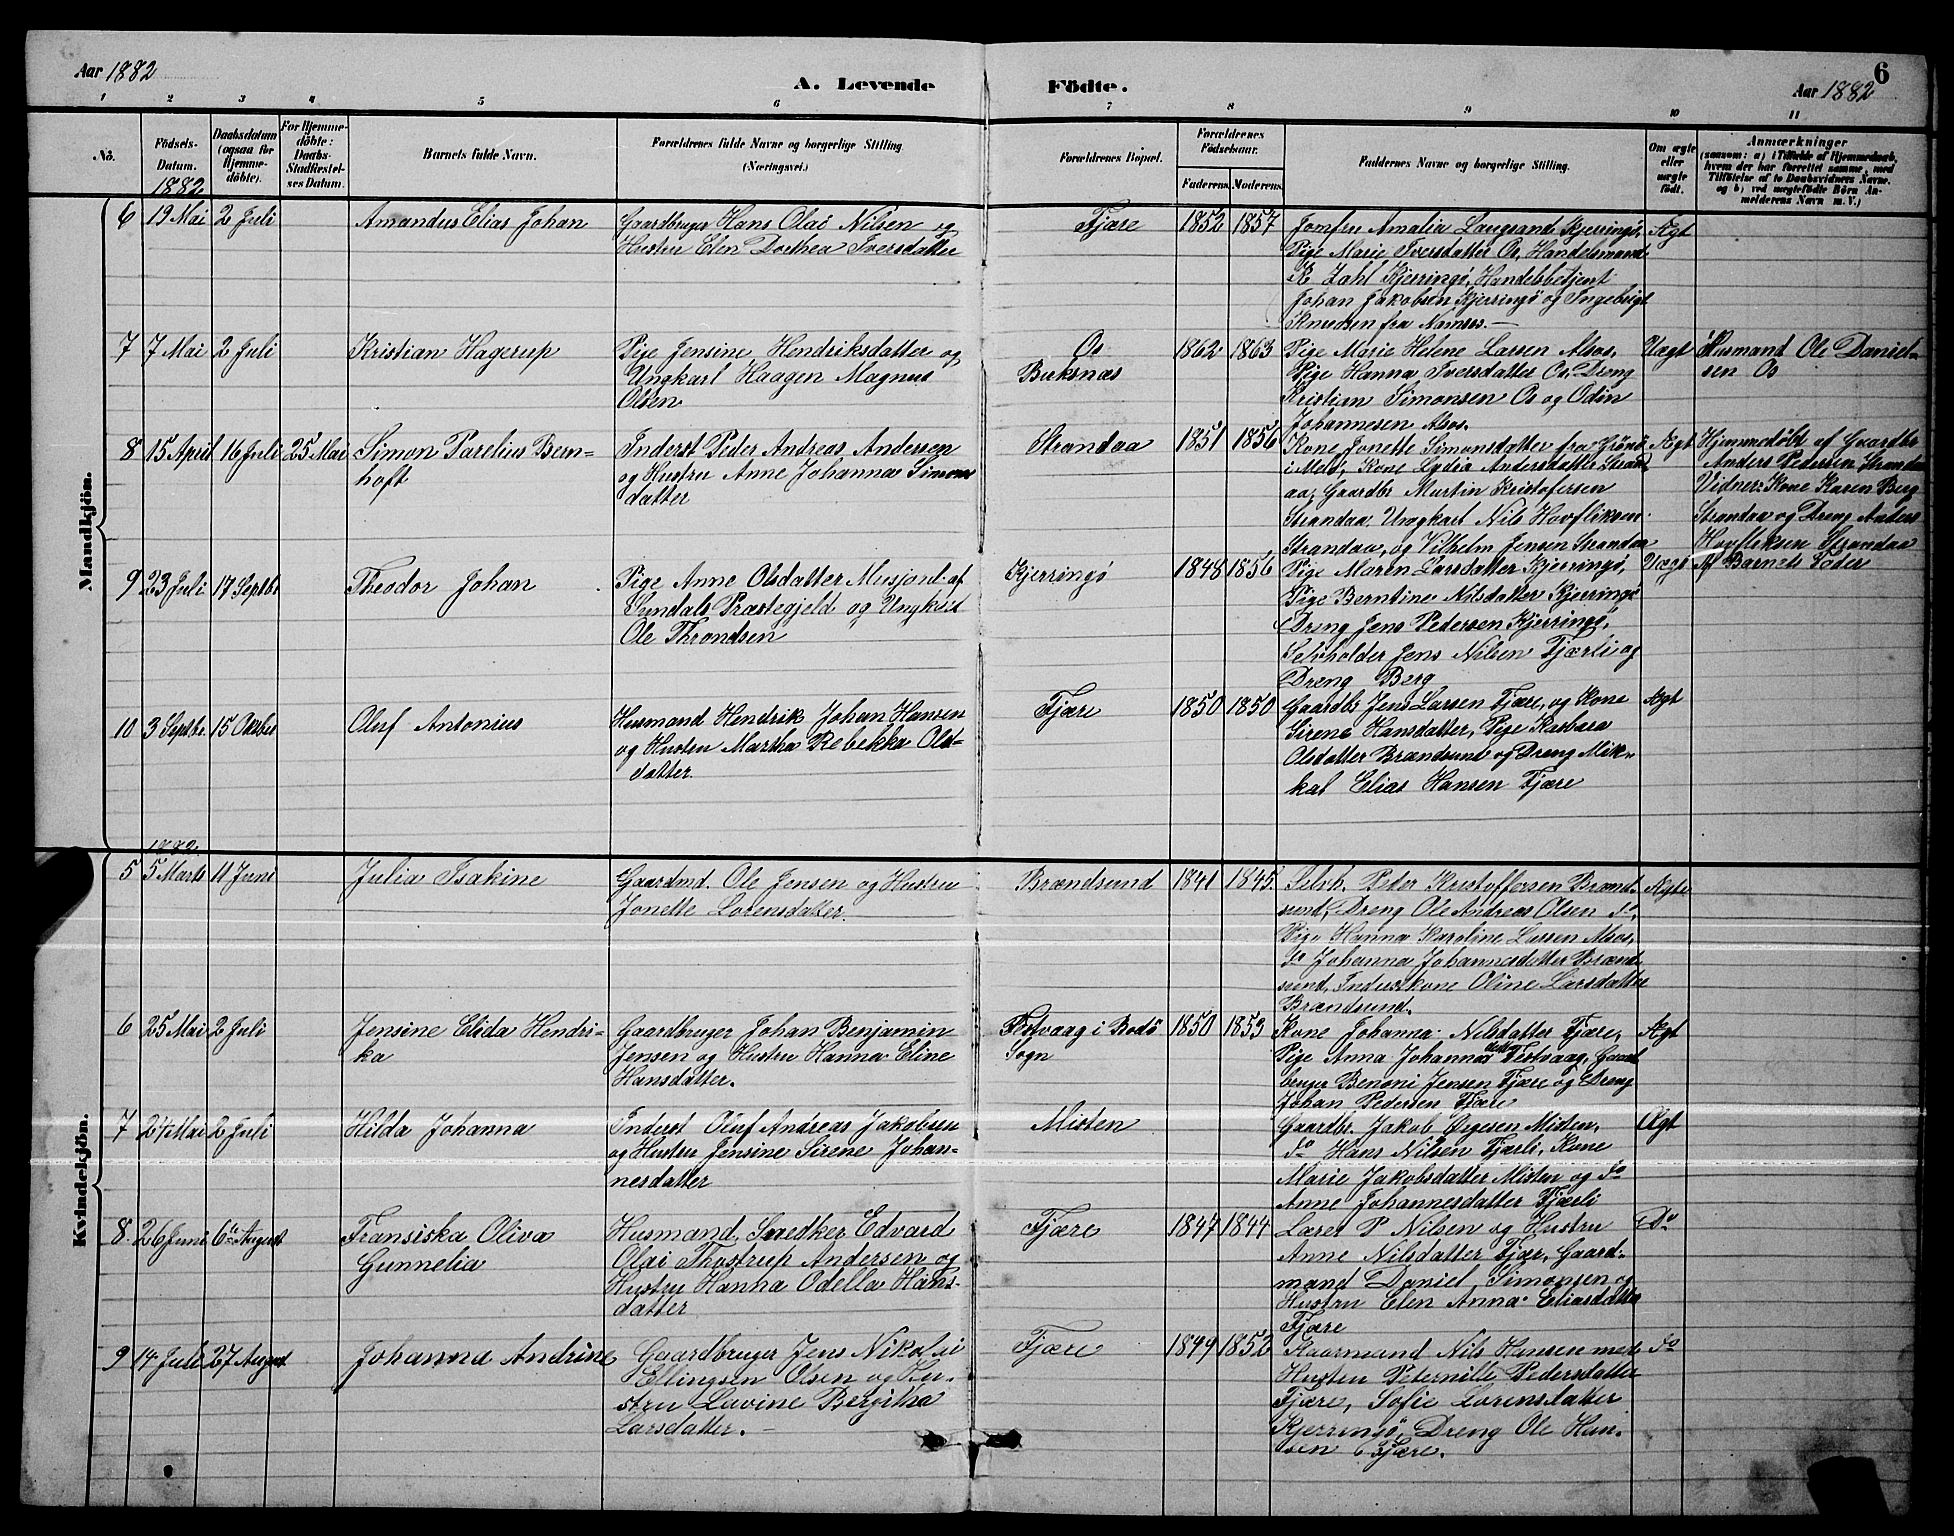 Aar 1882
A. Levende Födte.
Aar 1882
6
1 2 3 4 5 6 7 8 9 10 11
No.
Födsels-
Datum.
1882
Daabsdatum
(ogsaa for
Hjemme-
döbte).
For Hjemme-
döbte:
Daabs-
Stadfæstel-
ses Datum.
Barnets fulde Navn.
Forældrenes fulde Navne og borgerlige Stilling
(Næringsvei.)
Forældrenes Bopæl.
Forældrenes
Födselsaar.
Faderens. Moderens.
Faddernes Navne og borgerlige Stilling.
Om ægte
eller
uægte
födt.
Anmærkninger
(saasom: a) i Tilfælde af Hjemmedaab,
hvem der har forrettet samme, med
Tilföielse af to Daabsvidners Navne,
og b) ved uægtefödte Börn An-
melderens Navn m. V.)
Mandkjön.
6 19 Mai 2 Juli
Amandus Elias Johan
Gaardbruger Hans Olai Nilsen og
Hustru Elen Dorthea Iversdatter
Fjære
1852 1857
Jomfru Amalia Langsand Kjerringö,
Pige Marie Iversdatter Os, Handelsmand
K Zahl Kjerringö, Handelsbetjent
Johan Jakobsen Kjerringö og Ingebrigt
Knudsen fra Namsos.
Ægt
7 7 Mai 2 Juli
Kristian Hagerup
Pige Jensine Hendriksdatter og
Ungkarl Haagen Magnus
Olsen
Os
Buksnæs
1862 1863
Pige Marie Helene Larsen Alsos,
Pige Hanna Iversdatter Os, Dreng
Kristian Simonsen Os og Odin
Johannesen Alsos.
Uægt
Husmand Ole Daniel-
sen Os
8 15 April 16 Juli 25 Mai
Simon Parelius Bern-
hoft
Inderst Peder Andreas Andersen
og Hustru Anne Johanna Simons
datter
Strandaa
1851 1856
Kone Jonette Simonsdatter fra Grönö
i Melö, Kone Lydia Andersdatter Strand
aa, Gaardbr Martin Kristofersen
Strandaa, Ungkarl Nils Hovfliksen
Strandaa, og Vilhelm Jensen Strandaa
Ægt
Hjemmedöbt af Gaardbr
Anders Pedersen Strandaa
Vidner: Kone Karen Berg
Strandaa og Dreng Anders
Hovfliksen Strandaa
9 23 Juli 17 Septbr
Theodor Johan
Pige Anne Olsdatter Musjord af
Sundals Præstegjeld og Ungkarl
Ole Throndsen
Kjerringö
1848 1856
Pige Maren Larsdatter Kjerringö,
Pige Berntine Nilsdatter Kjerringö
Dreng Jens Pedersen Kjerringö,
Selvholder Jens Nilsen Fjærli og
Dreng Berg
Uægt
Af Barnets Fader
10 3 Septbr 15 Oktber
Oluf Antonius
Husmand Hendrik Johan Hansen
og Hustru Martha Rebekka Ols-
datter
Fjære
1850 1850
Gaardb Jens Larsen Fjære, og Kone
Sirene Hansdatter, Pige Barbara
Olsdatter Brændsund og Dreng Mik-
kal Elias Hansen Fjære
Ægt
Kvindekjön.
1882
5 5 Marts 11 Juni
Julia Isakine
Gaardmd. Ole Jensen og Hustru
Jonette Lorensdatter.
Brændsund
1841 1845
Selvh. Peder Kristoffersen Brænd-
sund, Dreng Ole Andreas Olsen do,
Pige Hanna Karoline Larsen Alsos,
do Johanna Johannesdatter Brænd
sund, Inderstkone Oline Larsdatter
Brændsund.
Ægte
6 25 Mai 2 Juli
Jensine Elida Hendri-
ka
Gaardbruger Johan Benjamin
Jensen og Hustru Hanna Eline
Hansdatter.
Festvaag i Bodö
Sogn
1850 1853
Kone Johanna Nilsdatter Fjære,
Pige Anna Johannadatter Festvaag, Gaard
bruger Benoni Jensen Fjære og Dreng
Johan Pedersen Fjære
Ægt
7 24 Mai 2 Juli
Hilda Johanna
Inderst Oluf Andreas Jakobsen
og Hustru Jensine Sirene Johan-
nesdatter
Misten
Gaardbr. Jakob Misten,
do Hans Nilsen Fjærli, Kone
Marie Jakobsdatter Misten og do
Anne Johannesdatter Fjærli
Ægt
8 26 Juni 6te August
Fransiska Oliva
Gunnelia
Husmand, Snedker Edvard
Olai Thostrup Andersen og
Hustru Hanna Odella Hans-
datter
Fjære
1847 1844
Lærer P Nilsen og Hustru
Anne Nilsdatter Fjær, Gaard-
mand Daniel Simonsen og
Hustru Elen Anna Eliasdatter
Fjære
Do
9 14 Juli 27 August
Johanna Andrine
Gaardbruger Jens Nikolai
Ellingsen Olsen og Hu-
stru Lavine Bergitha
Larsdatter.
Fjære
1849 1852
Kaarmand Nils Hansen med
Hustru Peternille Pedersdatter
Fjære, Sofie Lorensdatter
Kjerringö, Dreng Ole Han-
sen Fjære.
do